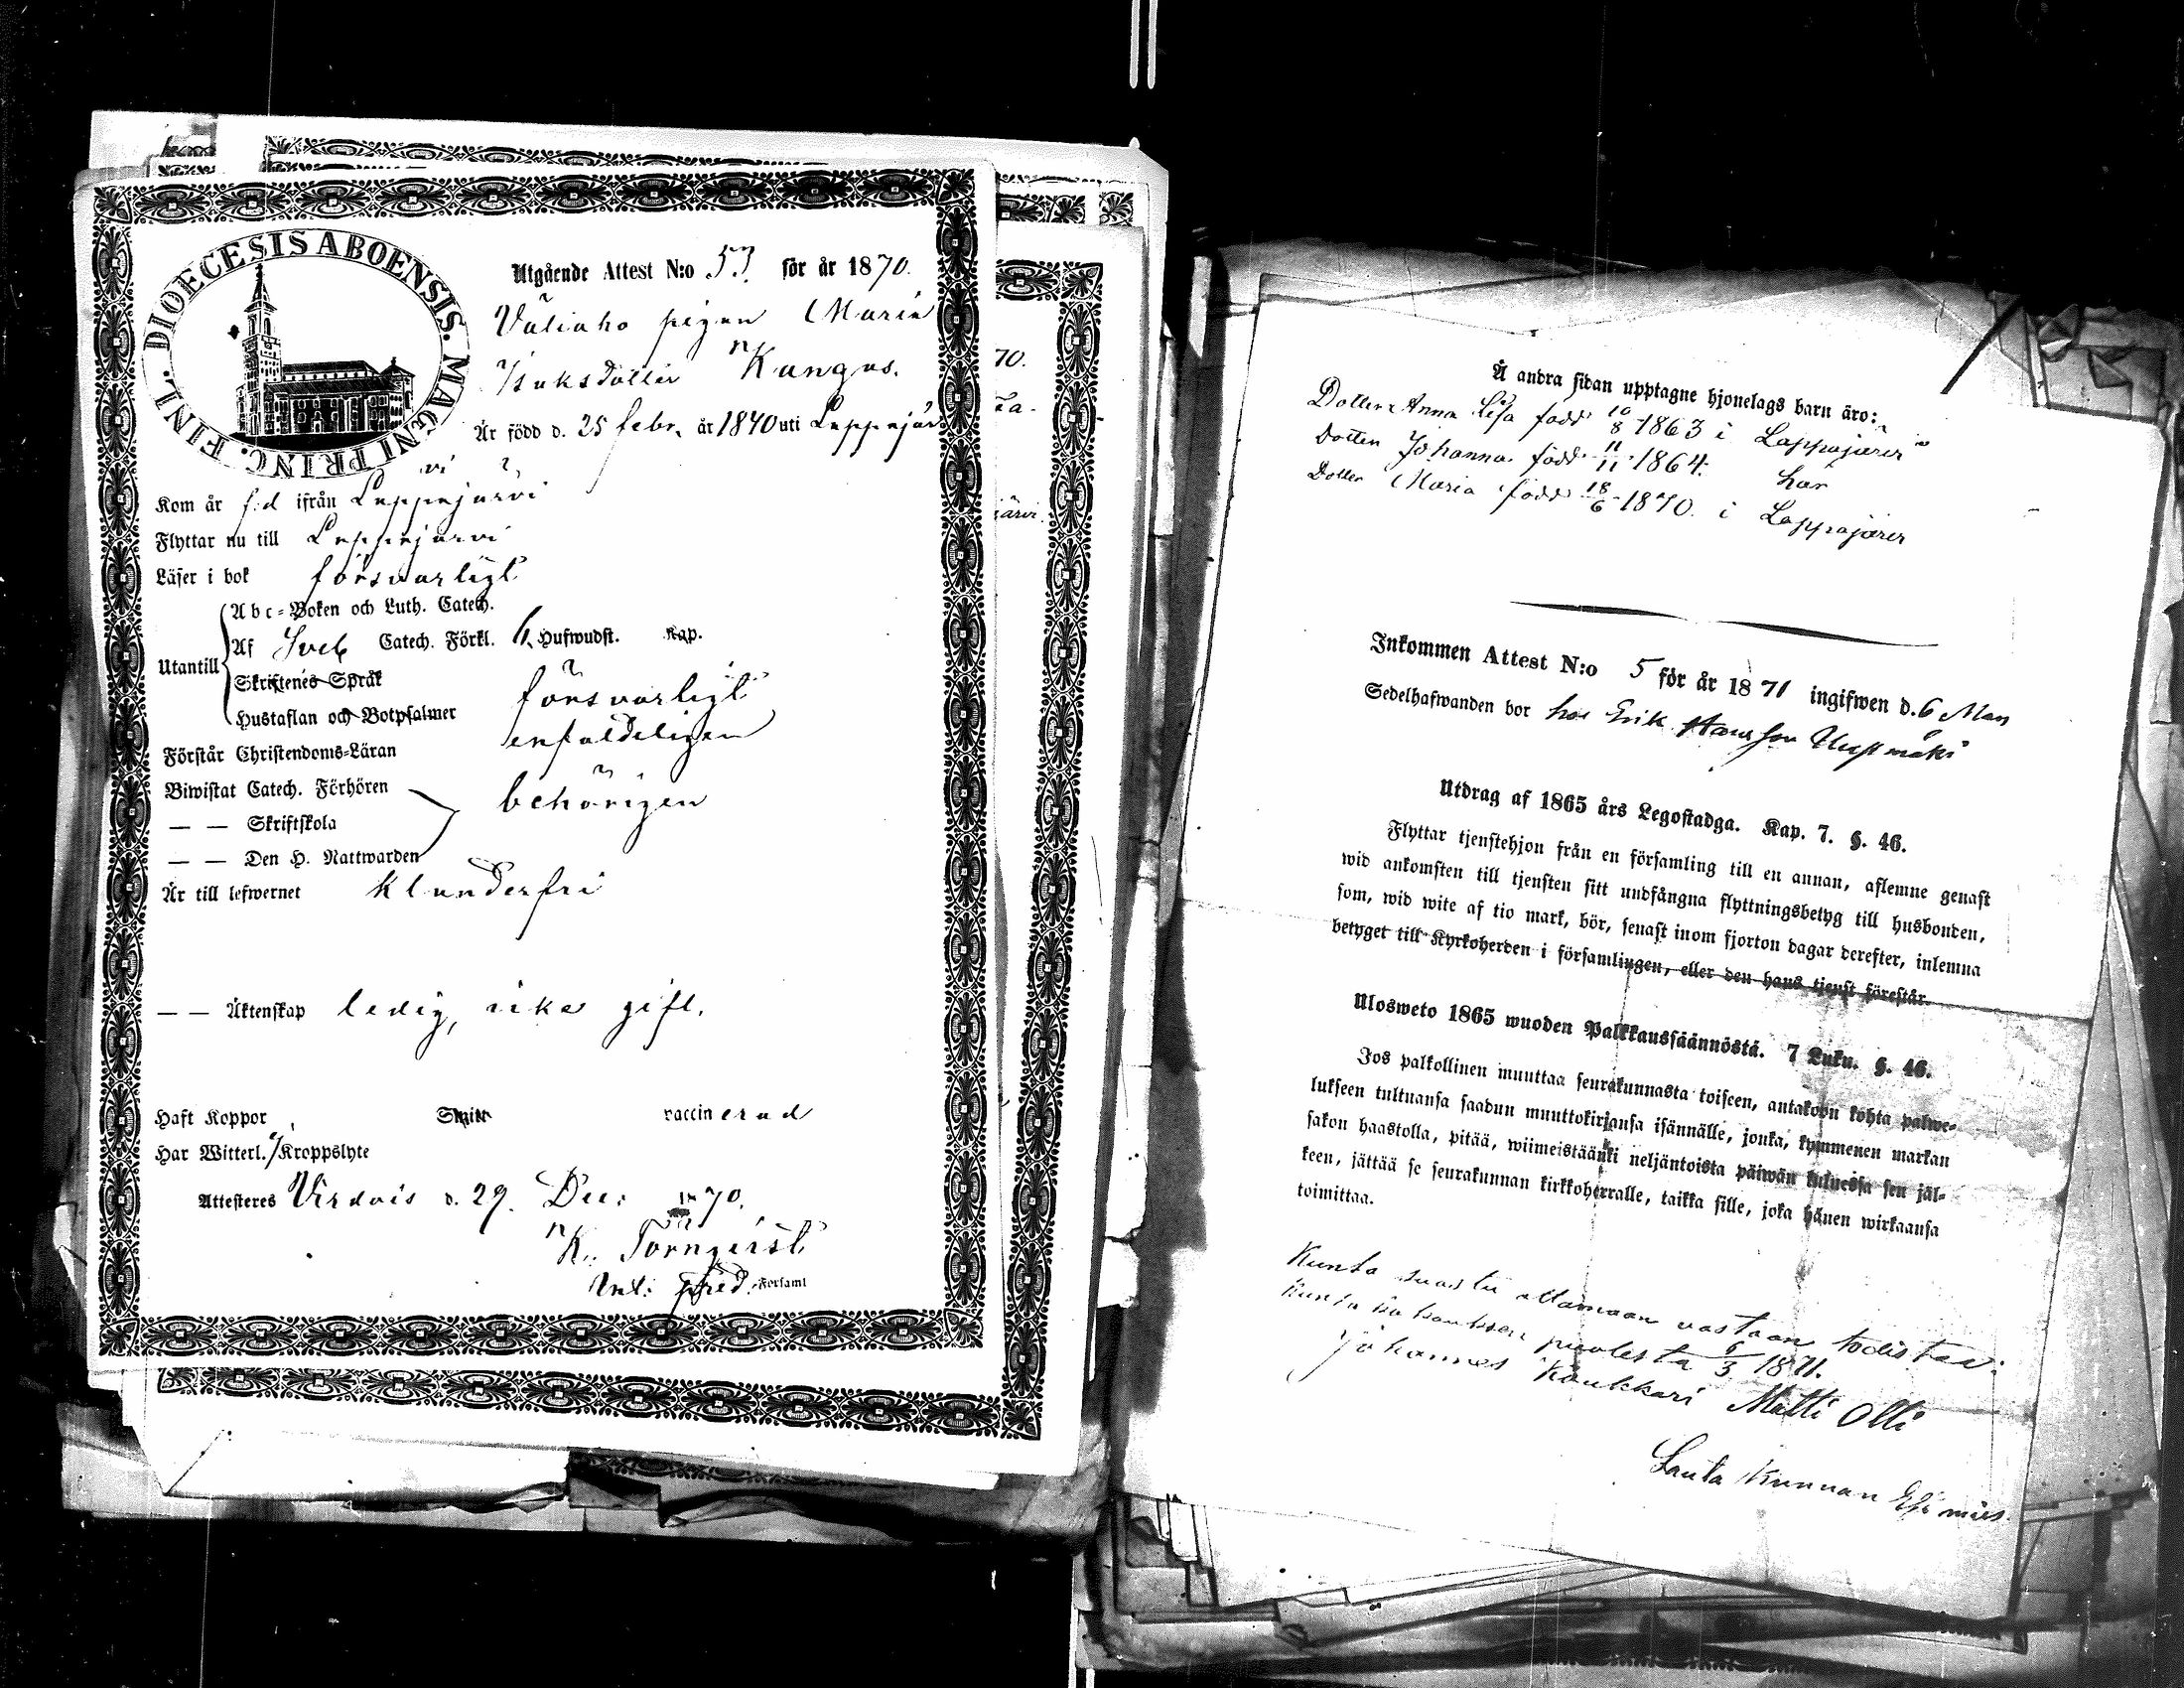 DIOECESIS ABOENSIS. MAGNI PRINC. FINL.
Utgående Attest N:o 53 för år 1870.
Väliaho pigan Maria
Isaksdotter Kangas.
Är född d. 25 febr. år 1840 uti Lappajär
vi
Kom år f:d ifrån Lappajärvi
Flyttar nu till Lappajärvi
Läser i bok försvarligt
Utantill
Abc-Boken och Luth. Catech.
Af Sveb Catech. Förkl. 6 Hufwudst. Kap.
Skriftenes Språk
Hustaflan och Botpsalmer försvarligt
Förstår Christendoms-Läran enfaldeligen
Biwistat Catech. Förhören
— — Skriftskola behörigen
— — Den H. Nattwarden
Är till lefwernet klanderfri
— — Äktenskap ledig, icke gift.
Haft Koppor vaccinerad
Har Witterl. Kroppslyte
Attesteres Virdois d. 29. Dec: 1870.
K. Törnqvist
Församl
70.
Å andra sidan upptagne hjonelags barn äro:
Dotter Anna Lisa född 10/8 1863 i Lappajärvi
Dotter Johanna född 11/11 1864. här
Dotter Maria född 18/6 1870. i Lappajärvi
Inkommen Attest N:o 5 för år 1871 ingifwen d. 6 Mars
Sedelhafwanden bor hos Erik Hansson
Utdrag af 1865 års Legostadga. Kap. 7. §. 46.
Flyttar tjenstehjon från en församling till en annan, aflemne genast
wid ankomsten till tjensten sitt undfångna flyttningsbetyg till husbonden,
som, wid wite af tio mark, bör, senast inom fjorton dagar derefter, inlemna
betyget till Kyrkoherden i församlingen, eller den hans tjenst förestår.
Ulosweto 1865 wuoden Palkkaussäännöstä. 7 Luku. §. 46.
Jos palkollinen muuttaa seurakunnasta toiseen, antakoon kohta palwe-
lukseen tultuansa saadun muuttokirjansa isännälle, jonka, kymmenen markan
sakon haastolla, pitää, wiimeistäänki neljäntoista päiwän kuluessa sen jäl-
keen, jättää se seurakunnan kirkkoherralle, taikka sille, joka hänen wirkaansa
toimittaa.
Kunta suostu ottamaan vastaan todistaa:
Kunta puolesta 6/3 1871.
Johannes Kaukkari Matti Olli
Lauta Kunnan Esi mies.